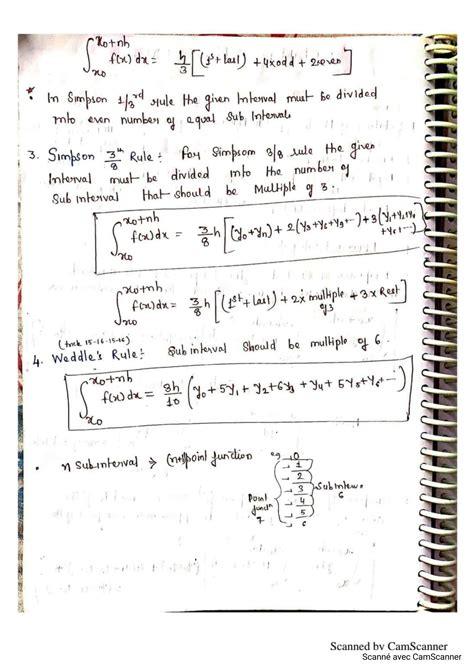 ∫x₀^x₀+nh f(x) dx = h/3 [(1st + last) + 4×odd + 2×even]
* In Simpson 1/3rd rule the given Interval must be divided
into even number of equal Sub, Intervals
3. Simpson 3/8th Rule :- For Simpsom 3/8 rule the given
Interval must be divided into the number of
Sub interval that should be Multiple of 3.
∫x₀^x₀+nh f(x) dx = 3/8 h [(y₀+yn) + 2(y₃+y₆+y₉+--) + 3(y₁+y₂+y₄
+y₅+--)]
∫x₀^x₀+nh f(x) dx = 3/8 h [(1st + last) + 2× multiple of 3 + 3 × Rest]
(trick 15-16-15-16)
4. Weddle's Rule :- Sub interval should be multiple of 6.
∫x₀^x₀+nh f(x) dx = 3h/10 (y₀ + 5y₁ + y₂ + 6y₃ + y₄ + 5y₅ + y₆ + --)
• n Subinterval → (n+1) point function
eg → 0
1
2
3
4
5
6
Subinterv
6
Point
functn
7
Scanned by CamScanner
Scanné avec CamScanner